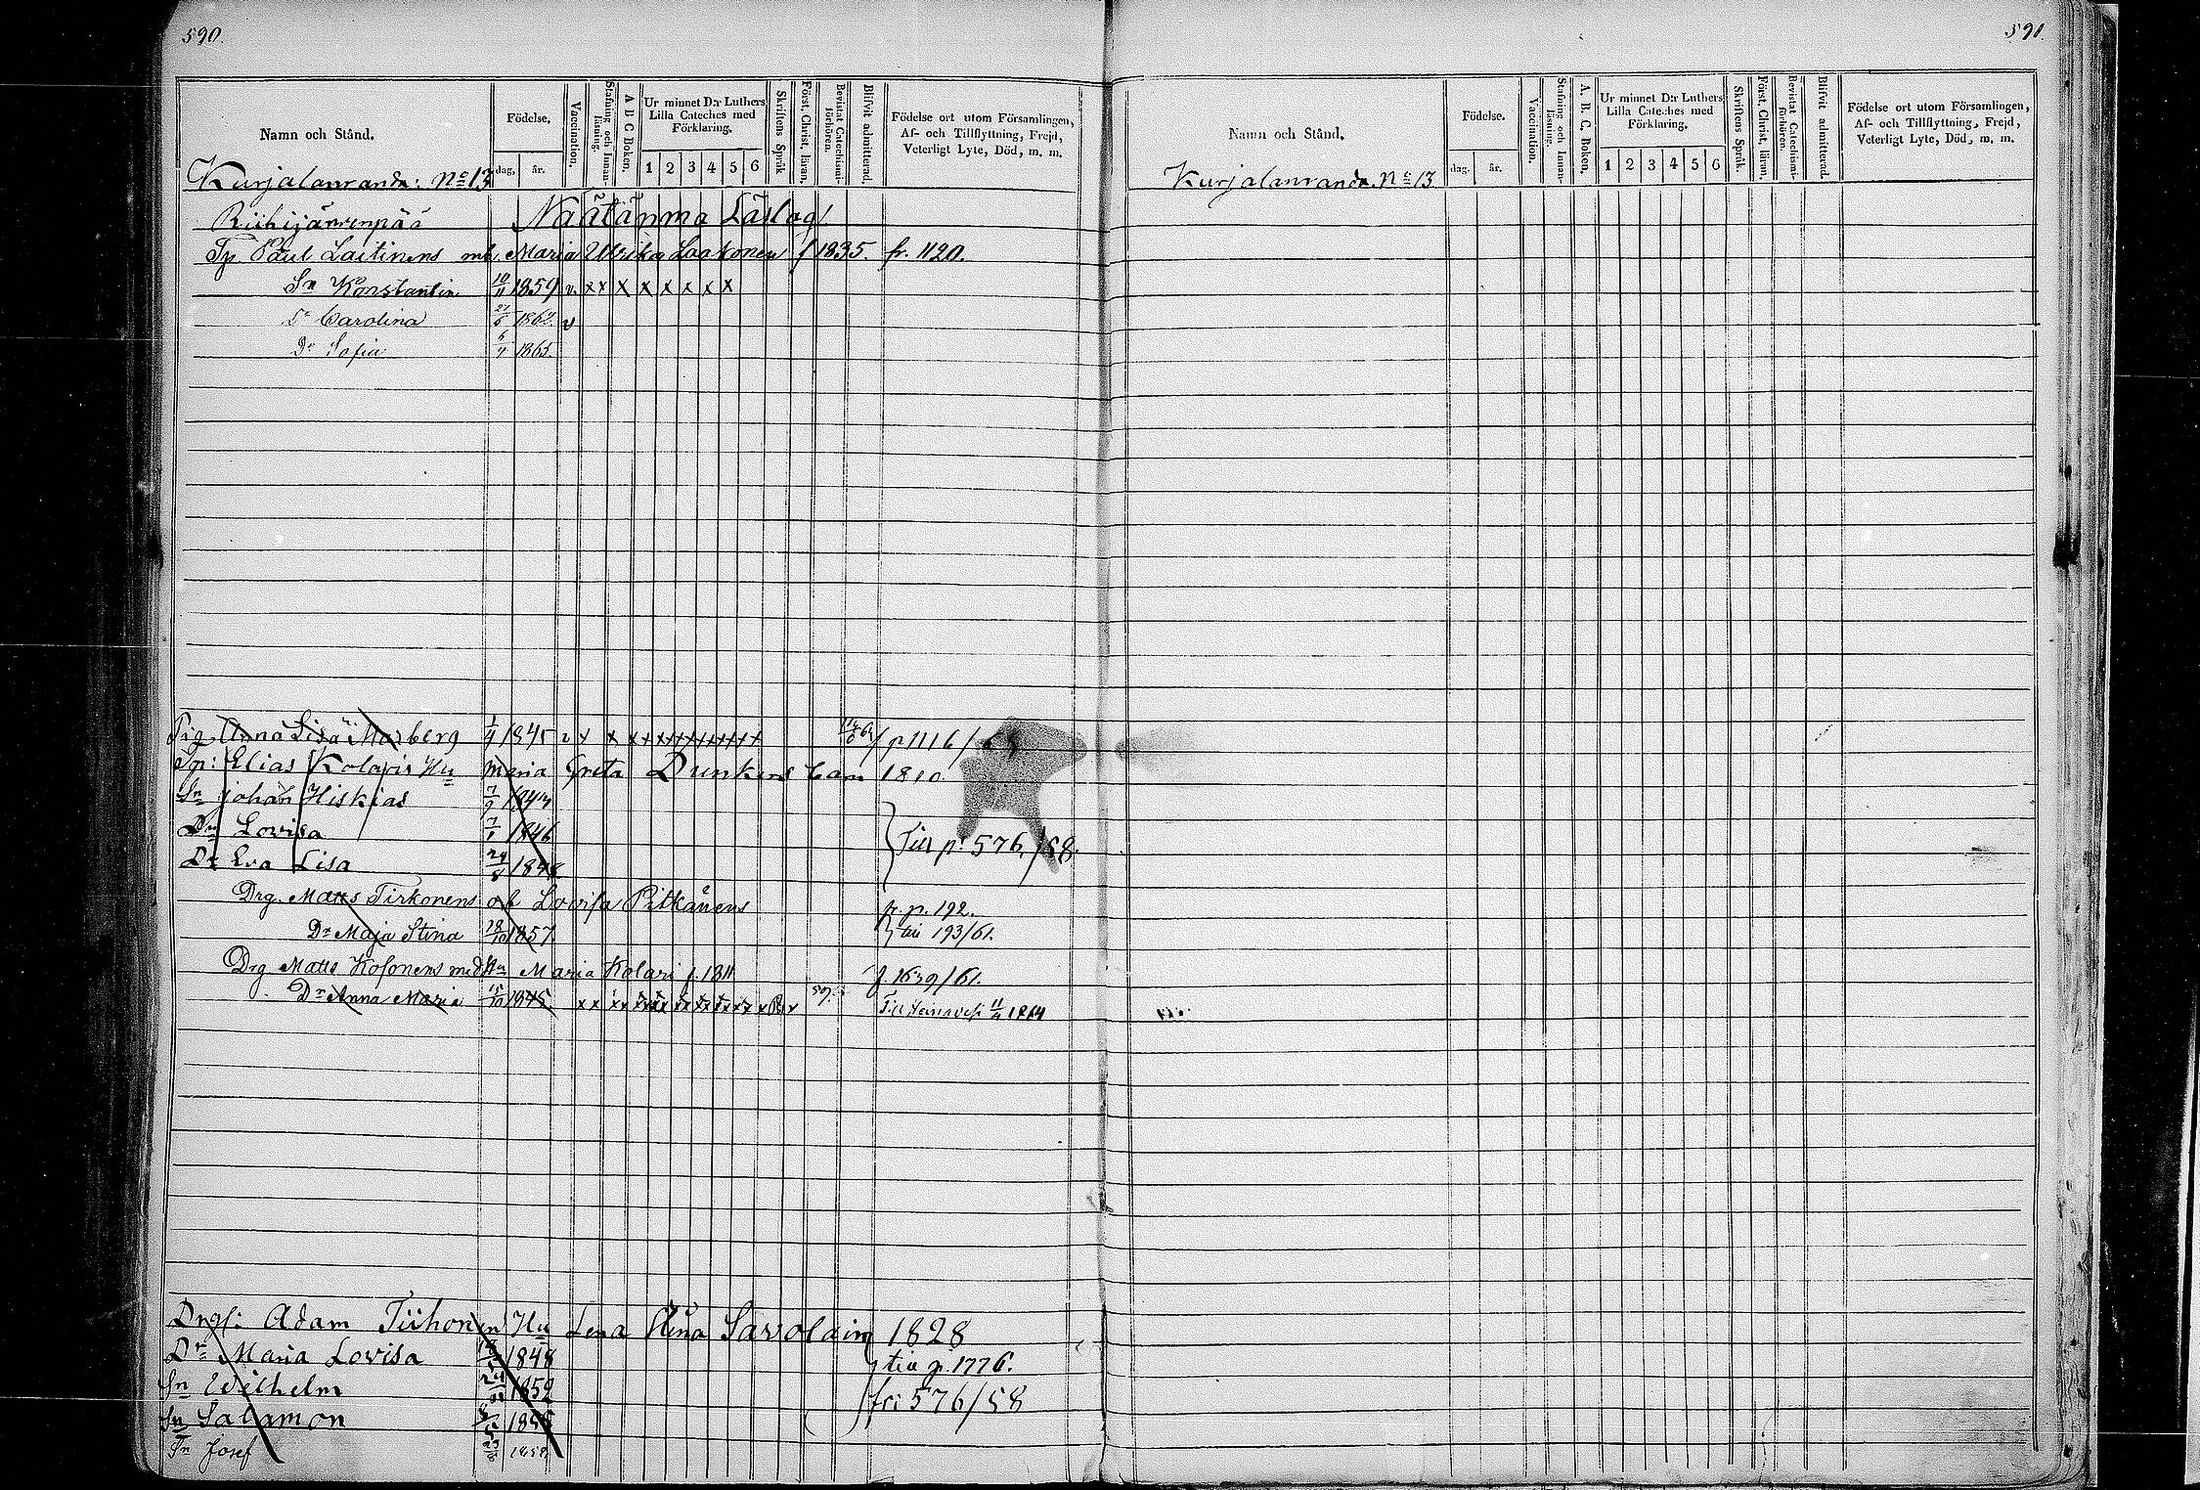 590.
Namn och Stånd.
Födelse.
dag. år.
Vaccination.
Stafning och Innan-läsning.
A B C Boken.
Ur minnet D:r Luthers Lilla Cateches med Förklaring.
1 2 3 4 5 6
Skriftens Språk
Först. Christ. läran.
Bevistat Catechismi-förhören.
Blifvit admitterad.
Födelse ort utom Församlingen, Af- och Tillflyttning, Frejd, Veterligt Lyte, Död, m. m.
Kurjalanranda: No 13
Riihijärvenpää Näätänma Läslag
Tp. Paul Laitinens Maria Ulrika Laakonen f 1835. fr. 1120.
Sn Konstantin 10/11 1859 v. x x x x x x x x
Dr Carolina 1862 v
Dr Sofia 1865.
Pig. Anna Lisa Marberg 1/4 1845 v x x x x x x x x x x x x p 1116/
Tp: Elias Kolaris Hu Maria Greta Dunkens 1810.
Sn Johan Hiskias 7/9 1843
Dr Lovisa 7/1 1846
Till p. 576./58.
Dr Eva Lisa 1848
Drg. Matts Tirkonens Lovisa Pitkänens fr. p. 192.
Dr Maja Stina 28/10 1857. till 193/61.
Drg Matts Kosonens med Hu Maria Kolari f. 1811 f. 1639/61.
Dr Anna Maria 15/10 1845. x x x x 59. Till Heinävesi 11/4 1864
Drgf: Adam Tiihonen Hu Lena Stina Savolain 1828
Dr Maria Lovisa 1848 till p. 1776.
Sn Wilhelm 1852
fr: 576/58
Sn Salamon 1855
Sn Josef 1858
591.
Namn och Stånd.
Födelse.
dag. år.
Vaccination.
Stafning och Innan-läsning.
A. B. C. Boken.
Ur minnet D:r Luthers Lilla Cateches med Förklaring.
1 2 3 4 5 6
Skriftens Språk.
Först. Christ. läran.
Bevistat Catechismi-förhören.
Blifvit admitterad.
Födelse ort utom Församlingen, Af- och Tillflyttning, Frejd, Veterligt Lyte, Död, m. m.
Kurjalanranda. No 13